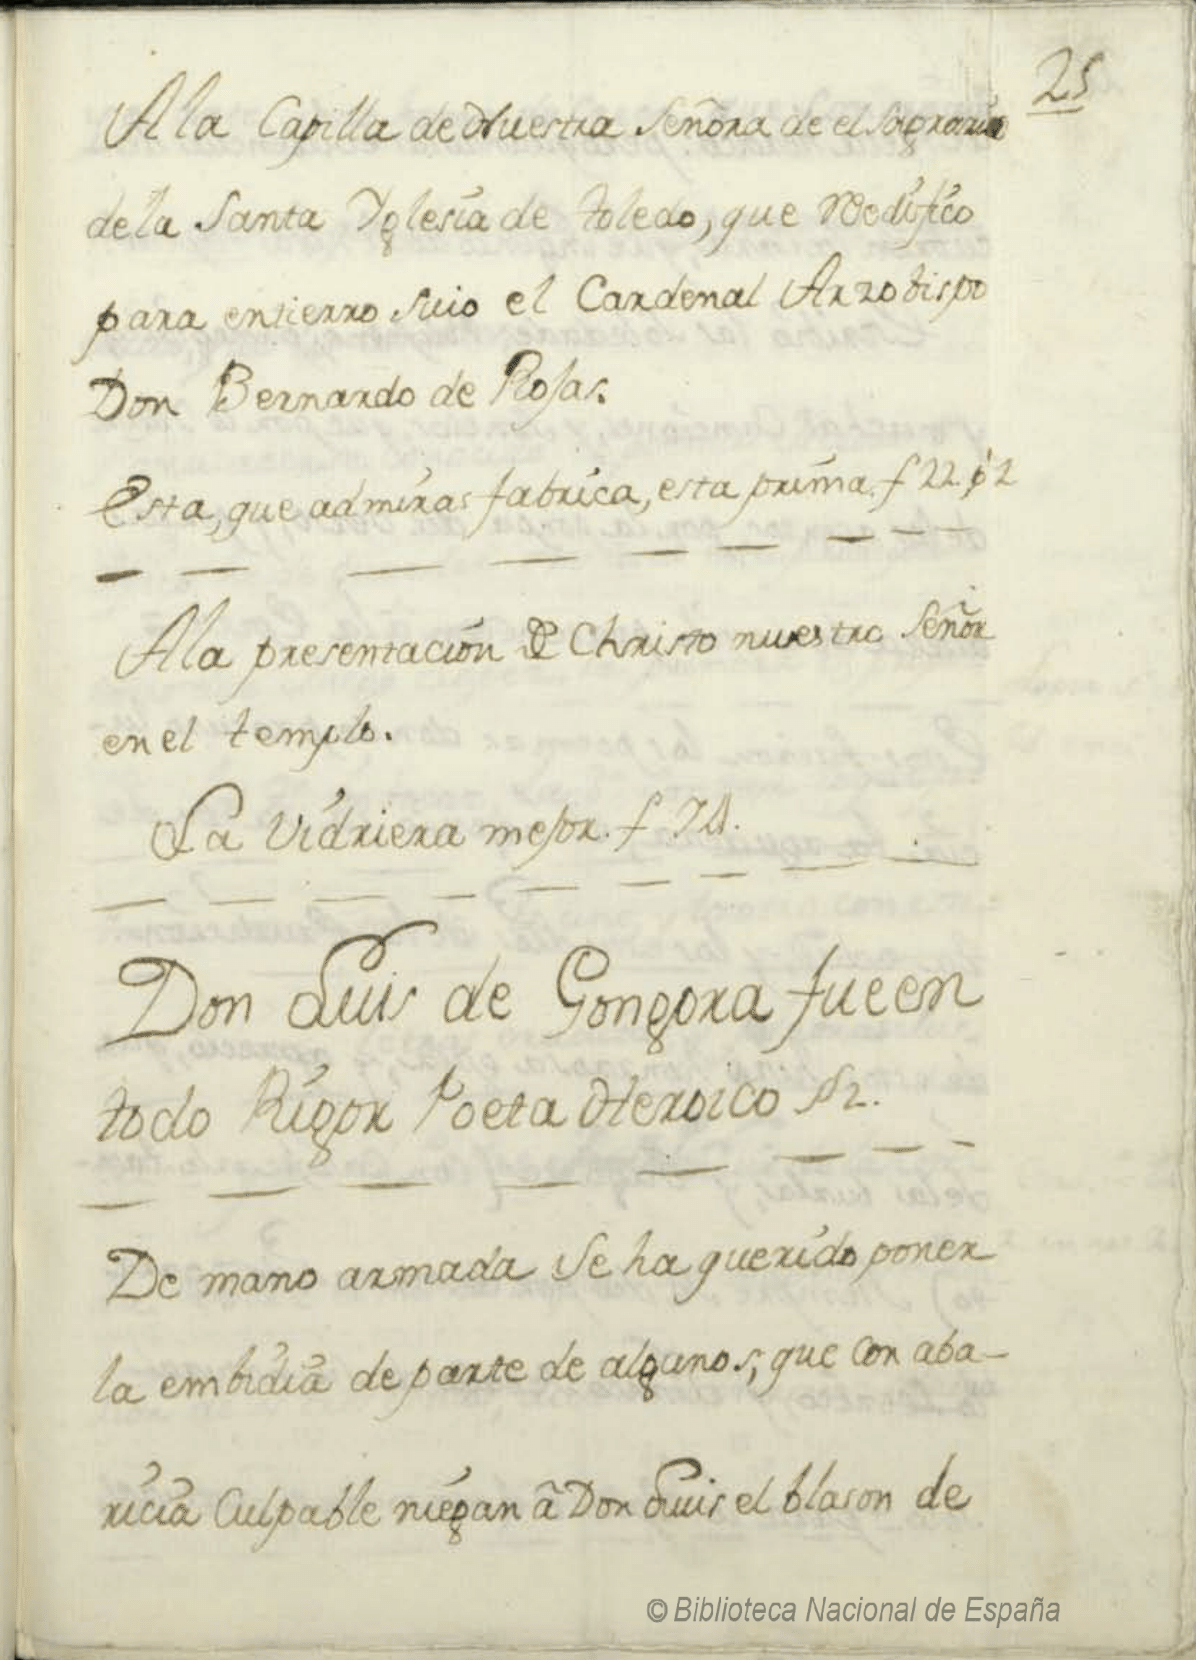 25
A la Capilla de Nuestra Señora de el Sagrario
de la Santa Yglesia de toledo, que Redifico
para entierro suio el Cardenal Arzobispo
Don Bernardo de Rojas.
Esta, que admiras fabrica, esta prima. f 22. 2
A la presentacion de Christo nuestro Señor
en el templo.
La Vidriera mejor. f 74.
Don Luis de Gongora fue en
todo Rigor Poeta Heroico f 2.
De mano armada se ha querido poner
la embidia de parte de algunos, que con aba-
ricia Culpable niegan â Don Luis el blason de
© Biblioteca Nacional de España